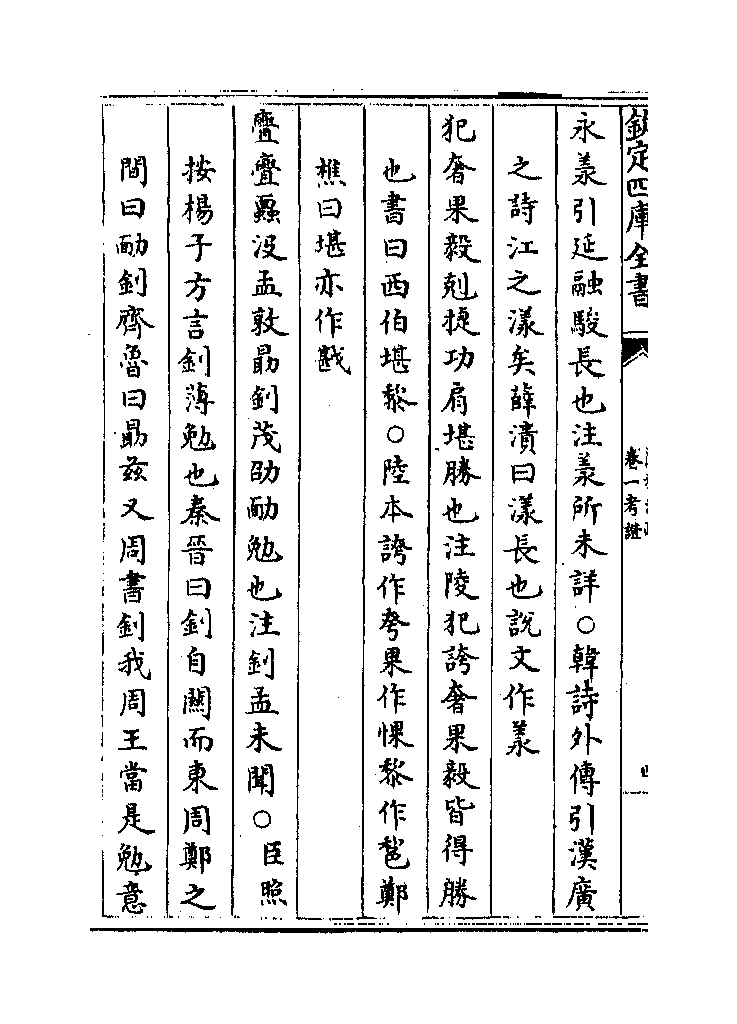 欽定四庫全書
卷一考證
永羕引延融駿長也注羕所未詳○韓詩外傳引漢廣
之詩江之漾矣薛漬曰漾長也說文作羕
犯奢果毅剋捷功肩堪勝也注陵犯誇奢果毅皆得勝
也書曰西伯堪黎○陸本誇作荂果作惈黎作𨛫鄭
樵曰堪亦作戡
亹亹蠠沒孟敦勗釗茂劭勔勉也注釗孟未聞○臣照
按楊子方言釗薄勉也秦晉曰釗自關而東周鄭之
間曰勔釗齊魯曰勗茲又周書釗我周王當是勉意